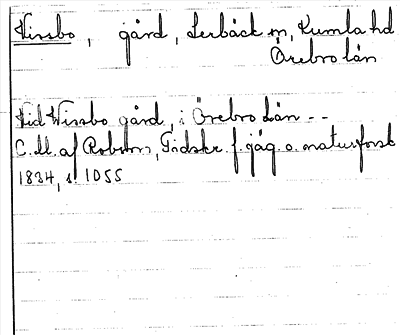 Wissbo, gård, Lerbäck sn, Kumla hd
Örebro län
Vid Wissbo gård, i Örebro Län --
C. U. af Robson, Tidskr. f. jäg. o. naturforsk
1834, s. 1055